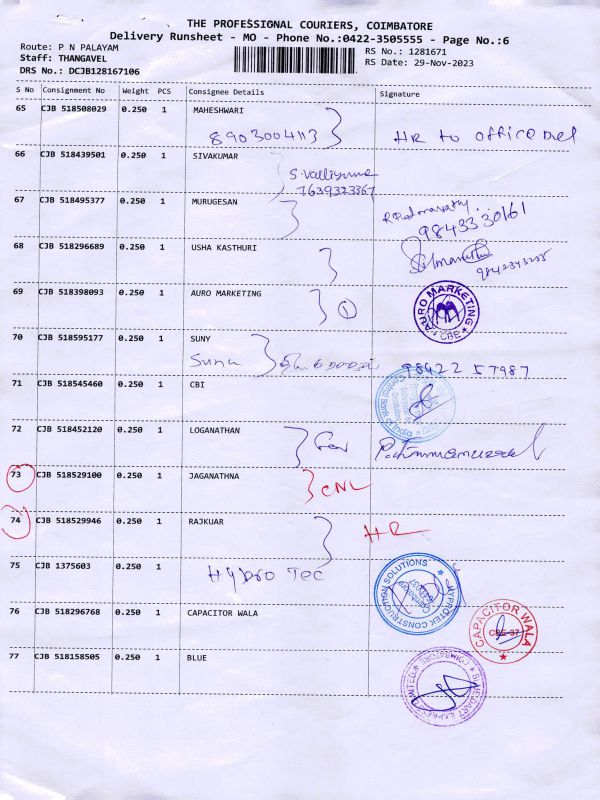 THE PROFESSIONAL COURIERS, COIMBATORE
Delivery Runsheet - MO - Phone No.:0422-3505555 - Page No.:6
Route: P N PALAYAM
RS No.: 1281671
Staff: THANGAVEL
RS Date: 29-Nov-2023
DRS No.: DCJB128167106
S No Consignment No Weight PCS Consignee Details Signature
65 CJB 518508029 0.250 1 MAHESHWARI
8903004113 HR to office
66 CJB 518439501 0.250 1 SIVAKUMAR
7639323367
67 CJB 518495377 0.250 1 MURUGESAN
9843330161
68 CJB 518296689 0.250 1 USHA KASTHURI
69 CJB 518398093 0.250 1 AURO MARKETING
1 AURO MARKETING CBE
70 CJB 518595177 0.250 1 SUNY
98422 57987
71 CJB 518545460 0.250 1 CBI
Central Bank of India
72 CJB 518452120 0.250 1 LOGANATHAN
73 CJB 518529100 0.250 1 JAGANATHNA
CNL
74 CJB 518529946 0.250 1 RAJKUAR
HR
75 CJB 1375603 0.250 1
Hydro Tec
CONSTRUCTION SOLUTIONS
76 CJB 518296768 0.250 1 CAPACITOR WALA
CAPACITOR WALA CBE-37
77 CJB 518158505 0.250 1 BLUE
BLUEDART EXPRESS LIMITED COIMBATORE